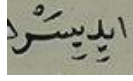 ايدِيسَرْ